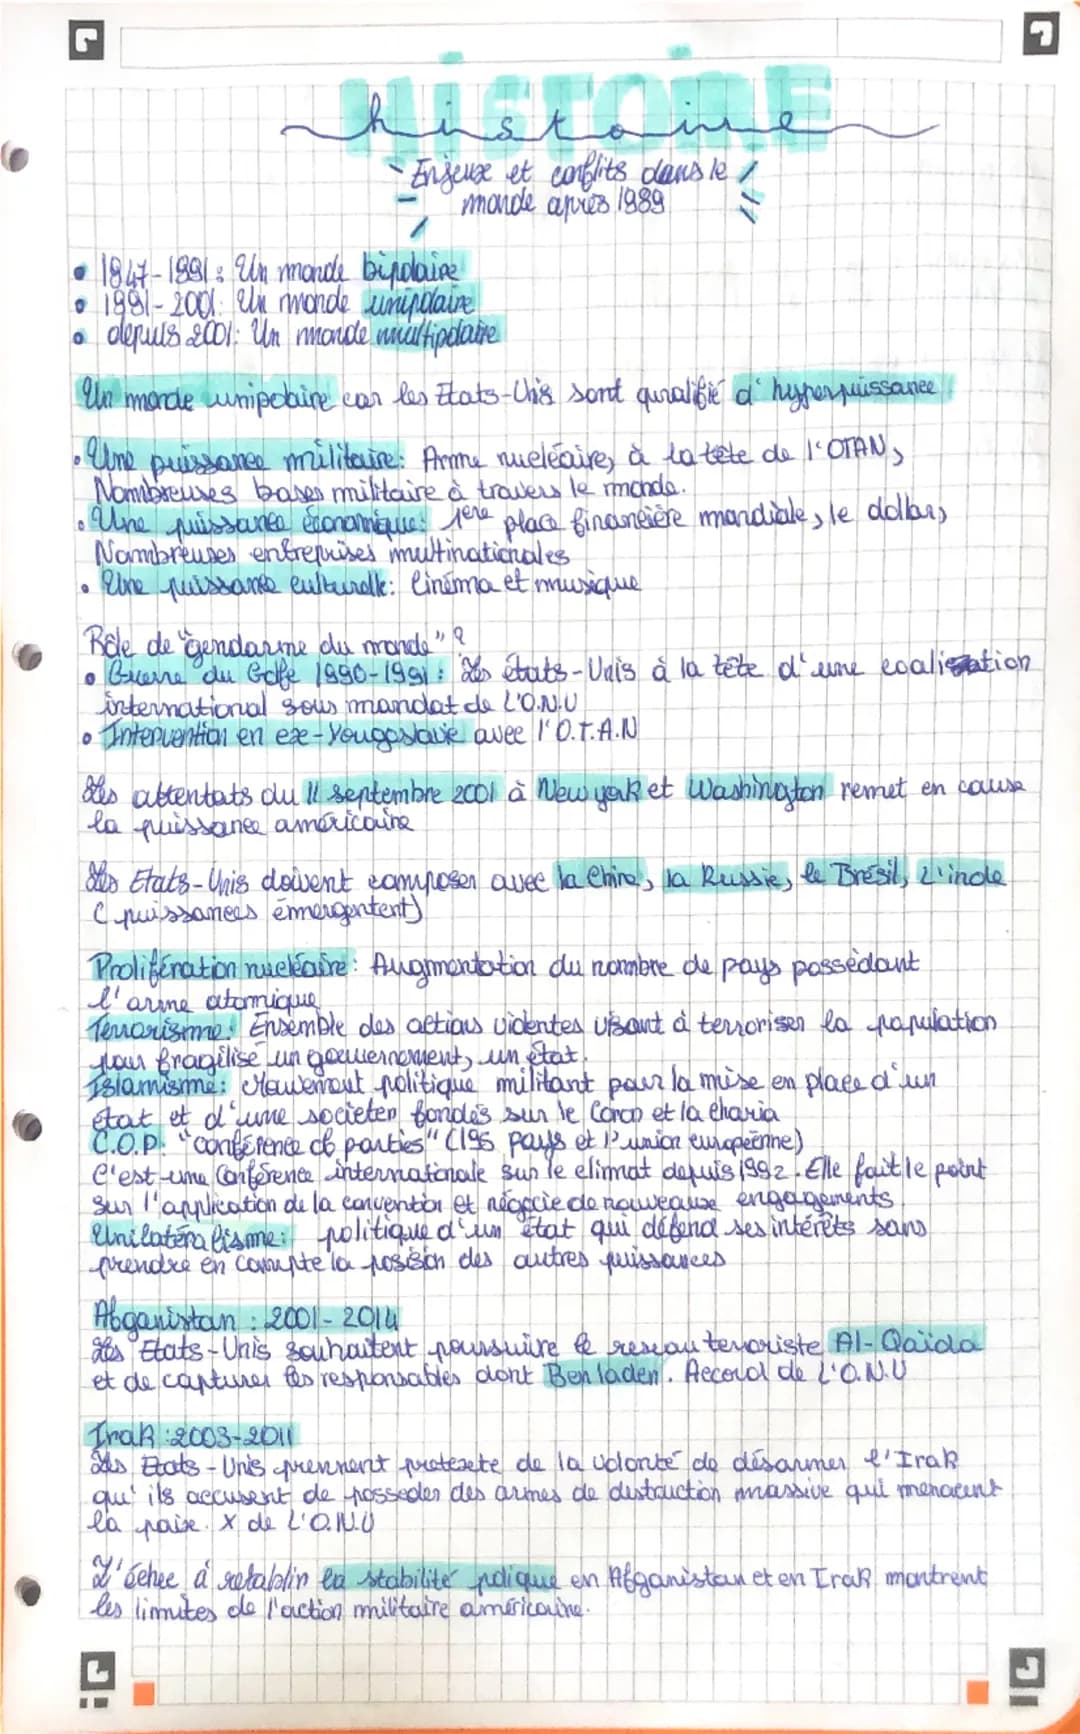 HISTOIRE
histoire
Enjeux et conflits dans le
monde après 1989
• 1947-1991: Un monde bipolaire
• 1991-2001: Un monde unipolaire
• depuis 2001: Un monde multipolaire
Un monde unipolaire car les Etats-Unis sont qualifié d'hyperpuissance
• Une puissance militaire: Arme nucléaire, à la tête de l'OTAN,
Nombreuses bases militaire à travers le monde.
• Une puissance économique: 1ère place financière mondiale, le dollar,
Nombreuses entreprises multinationales
• Une puissance culturelle: Cinéma et musique
Rôle de "gendarme du monde" ?
• Guerre du Golfe 1990-1991: Les états-Unis à la tête d'une coalisation
international sous mandat de L'O.N.U
• Intervention en ex-Yougoslavie avec l'O.T.A.N
Les attentats du 11 septembre 2001 à New york et Washington remet en cause
la puissance américaine
Les Etats-Unis doivent composer avec la Chine, la Russie, le Brésil, L'inde
(puissances émergentent)
Prolifération nucléaire: Augmentation du nombre de pays possédant
l'arme atomique
Terrorisme: Ensemble des actions violentes visant à terroriser la population
pour fragilisé un gouvernement, un état.
Islamisme: Mouvement politique militant pour la mise en place d'un
état et d'une societer fondés sur le Coran et la charia
C.O.P: "conférence of parties" (195 pays et l'union européenne)
C'est une Conférence internationale sur le climat depuis 1992. Elle fait le point
sur l'application de la convention et négocie de nouveaux engagements
Unilatéralisme: politique d'un état qui défend ses intérêts sans
prendre en compte la position des autres puissances
Afganistan : 2001-2014
Les Etats-Unis souhaitent poursuivre le reseau terroriste Al-Qaïda
et de capturer les responsables dont Ben laden. Accord de L'O.N.U
Irak : 2003-2011
Les Etats-Unis prennent pretexte de la volonté de désarmer l'Irak
qu'ils accusent de posseder des armes de destruction massive qui menacent
la paix. X de L'O.N.U
L'échec à retablir la stabilité polique en Afganistan et en Irak montrent
les limites de l'action militaire américaine.